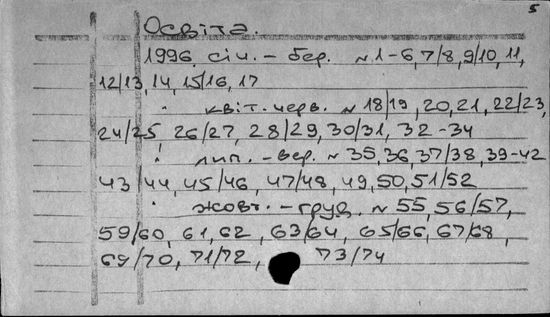 5
Освіта.
1996. січ. - бер. №1-6, 7/8, 9/10, 11,
12/13, 14, 15/16, 17
" квіт. черв. №18/19, 20, 21, 22/23,
24/25, 26/27, 28/29, 30/31, 32-34
" лип. - вер. №35, 36, 37/38, 39-42
43/44, 45/46, 47/48, 49, 50, 51/52
" жовт. - груд. №55, 56/57,
59/60, 61, 62, 63/64, 65/66, 67/68,
69/70, 71/72, 73/74